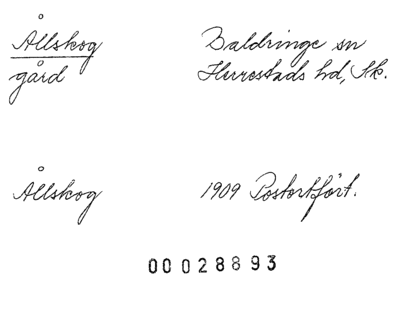 Ållskog Baldringe sn
gård Herrestads hd, Sk.
Ållskog 1909 Postortfört.
00028893